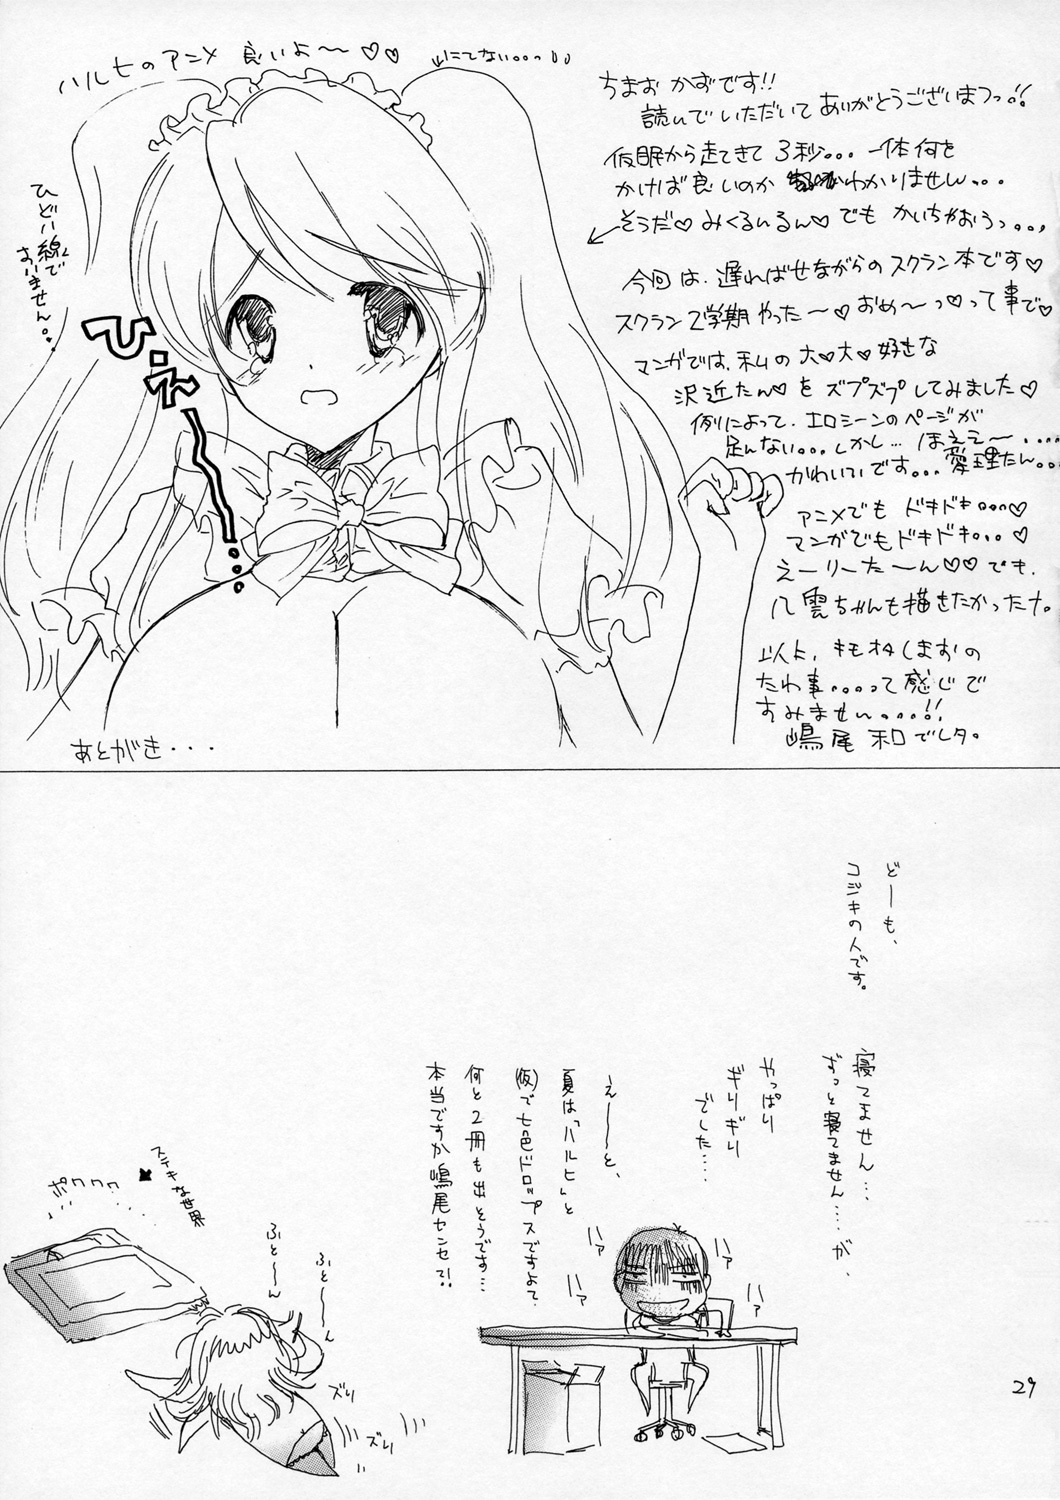 ハルヒのアニメ 良いよ〜♡♡
↓にてない。。っ
ひどい線で
すいません。。
ひ・え
あとがき・・・
ちまお かずです!!
読んでいただいてありがとうございまつっ!!
仮眠から起きてきて 3秒。。。一体何を
かけば良いのか わかりません。。。
そうだ♡みくるいるん♡でも かいちゃおうっ。。。
今回は、遅ればせながらのスクラン本です♡
スクラン2学期やった〜♡おめ〜っ♡って事で♡
マンガでは、私の大♡大♡好きな
沢近たん♡をズプズプしてみました♡
例によって、エロシーンのページが
足んない。。。しかし… ほええ〜・・・・・
かわいいです。。。愛理たん。。。
アニメでも ドキドキ。。。♡
マンガでもドキドキ。。。♡
えーりーた〜ん♡♡でも、
八雲ちゃんも描きたかったナ。
以上、キモオタしまおの
たわ事。。。。って感じで
すみませ〜ん。。。。!!
嶋尾 和でしタ。
どーも、
コジキの人です。
寝てません…
ずっと寝てません……が、
やっぱり
ギリギリ
でした…
え———と、
夏は「ハルヒ」と
(仮)で七色ドロップスですよて
何と2冊も出そうです…
本当ですか嶋尾センセ?!
ハァ
ハァ
ハァ
ハァ
ステキな世界
ポワワワ
ふと〜〜ん
ふと〜〜ん
ズリ
ズリ
29